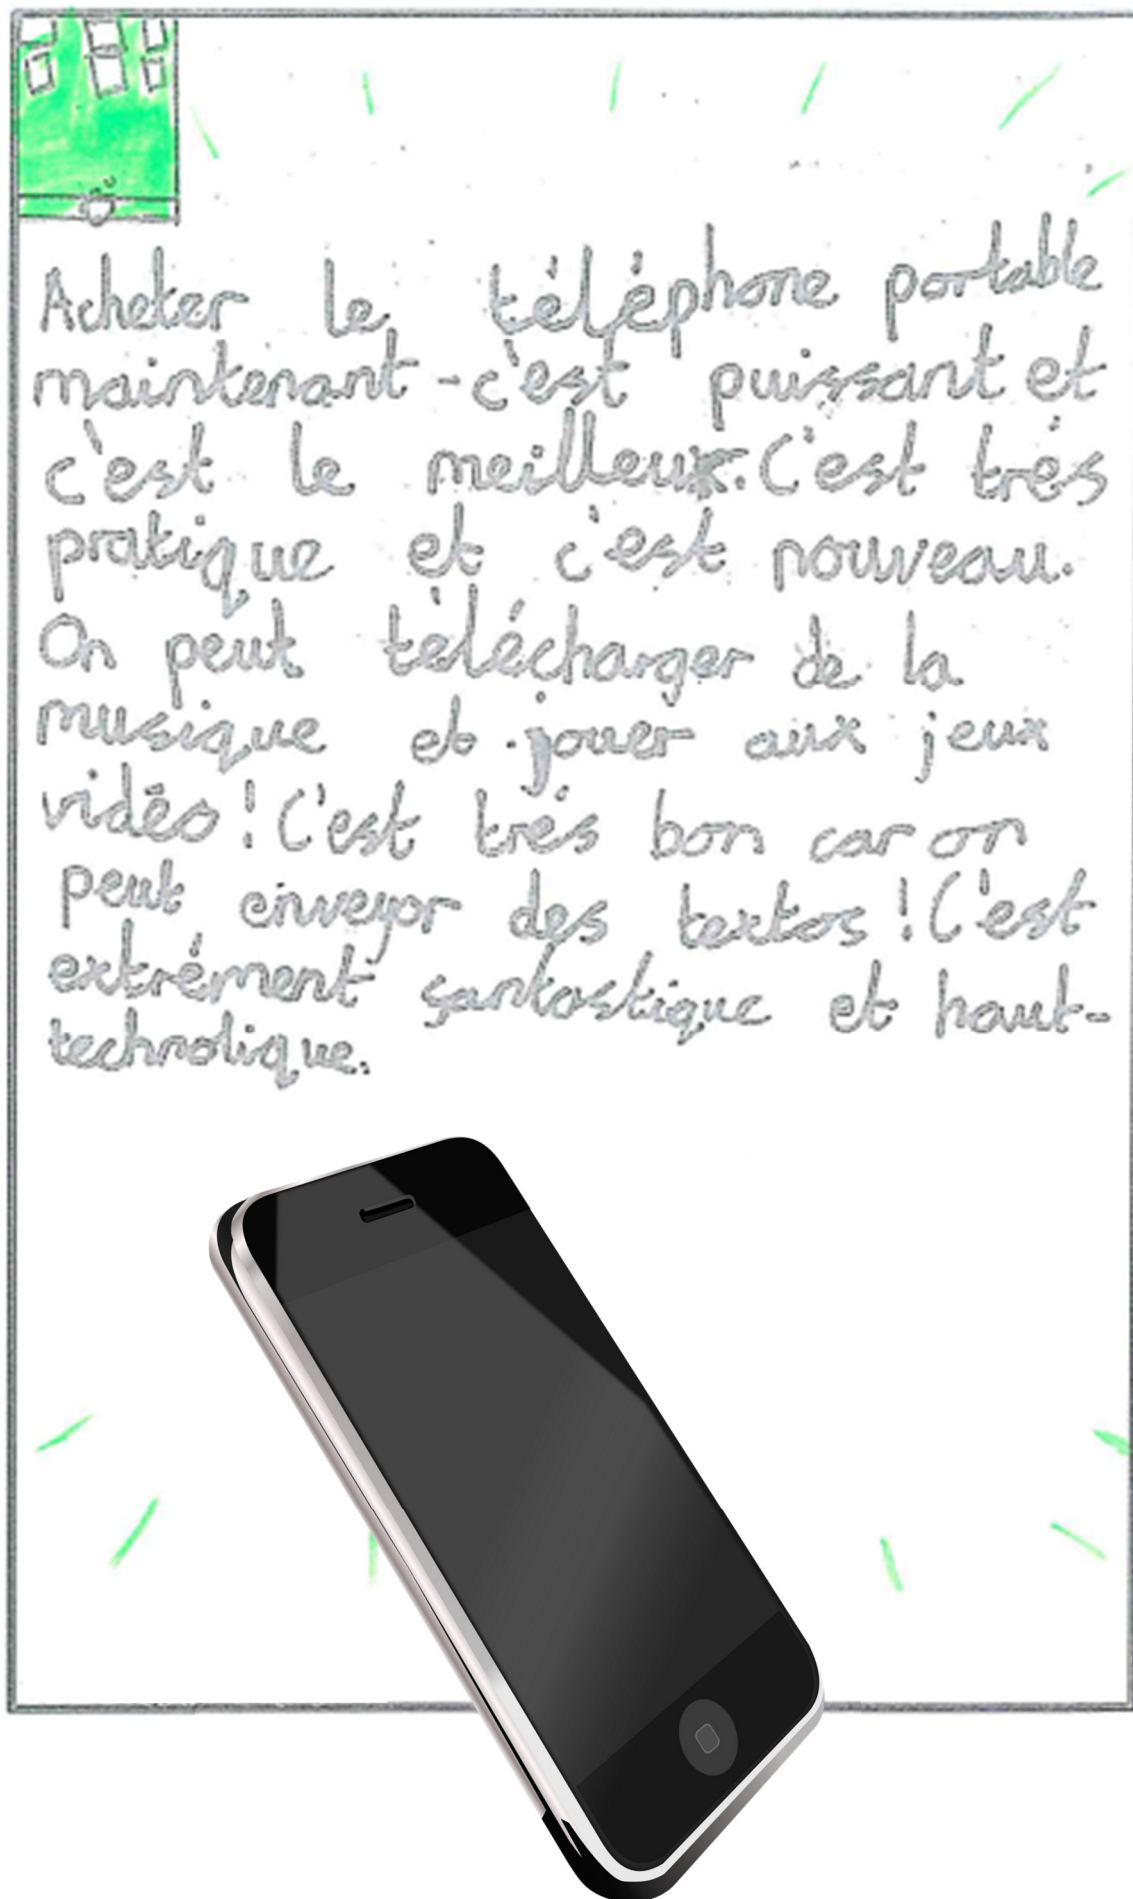 Acheter le téléphone portable
maintenant - c'est puissant et
c'est le meilleur. C'est trés
pratique et c'est nouveau.
On peut télécharger de la
musique et jouer aux jeux
vidéo! C'est trés bon car on
peut enveyor des textos! C'est
extrément fantastique et haut-
technolique.